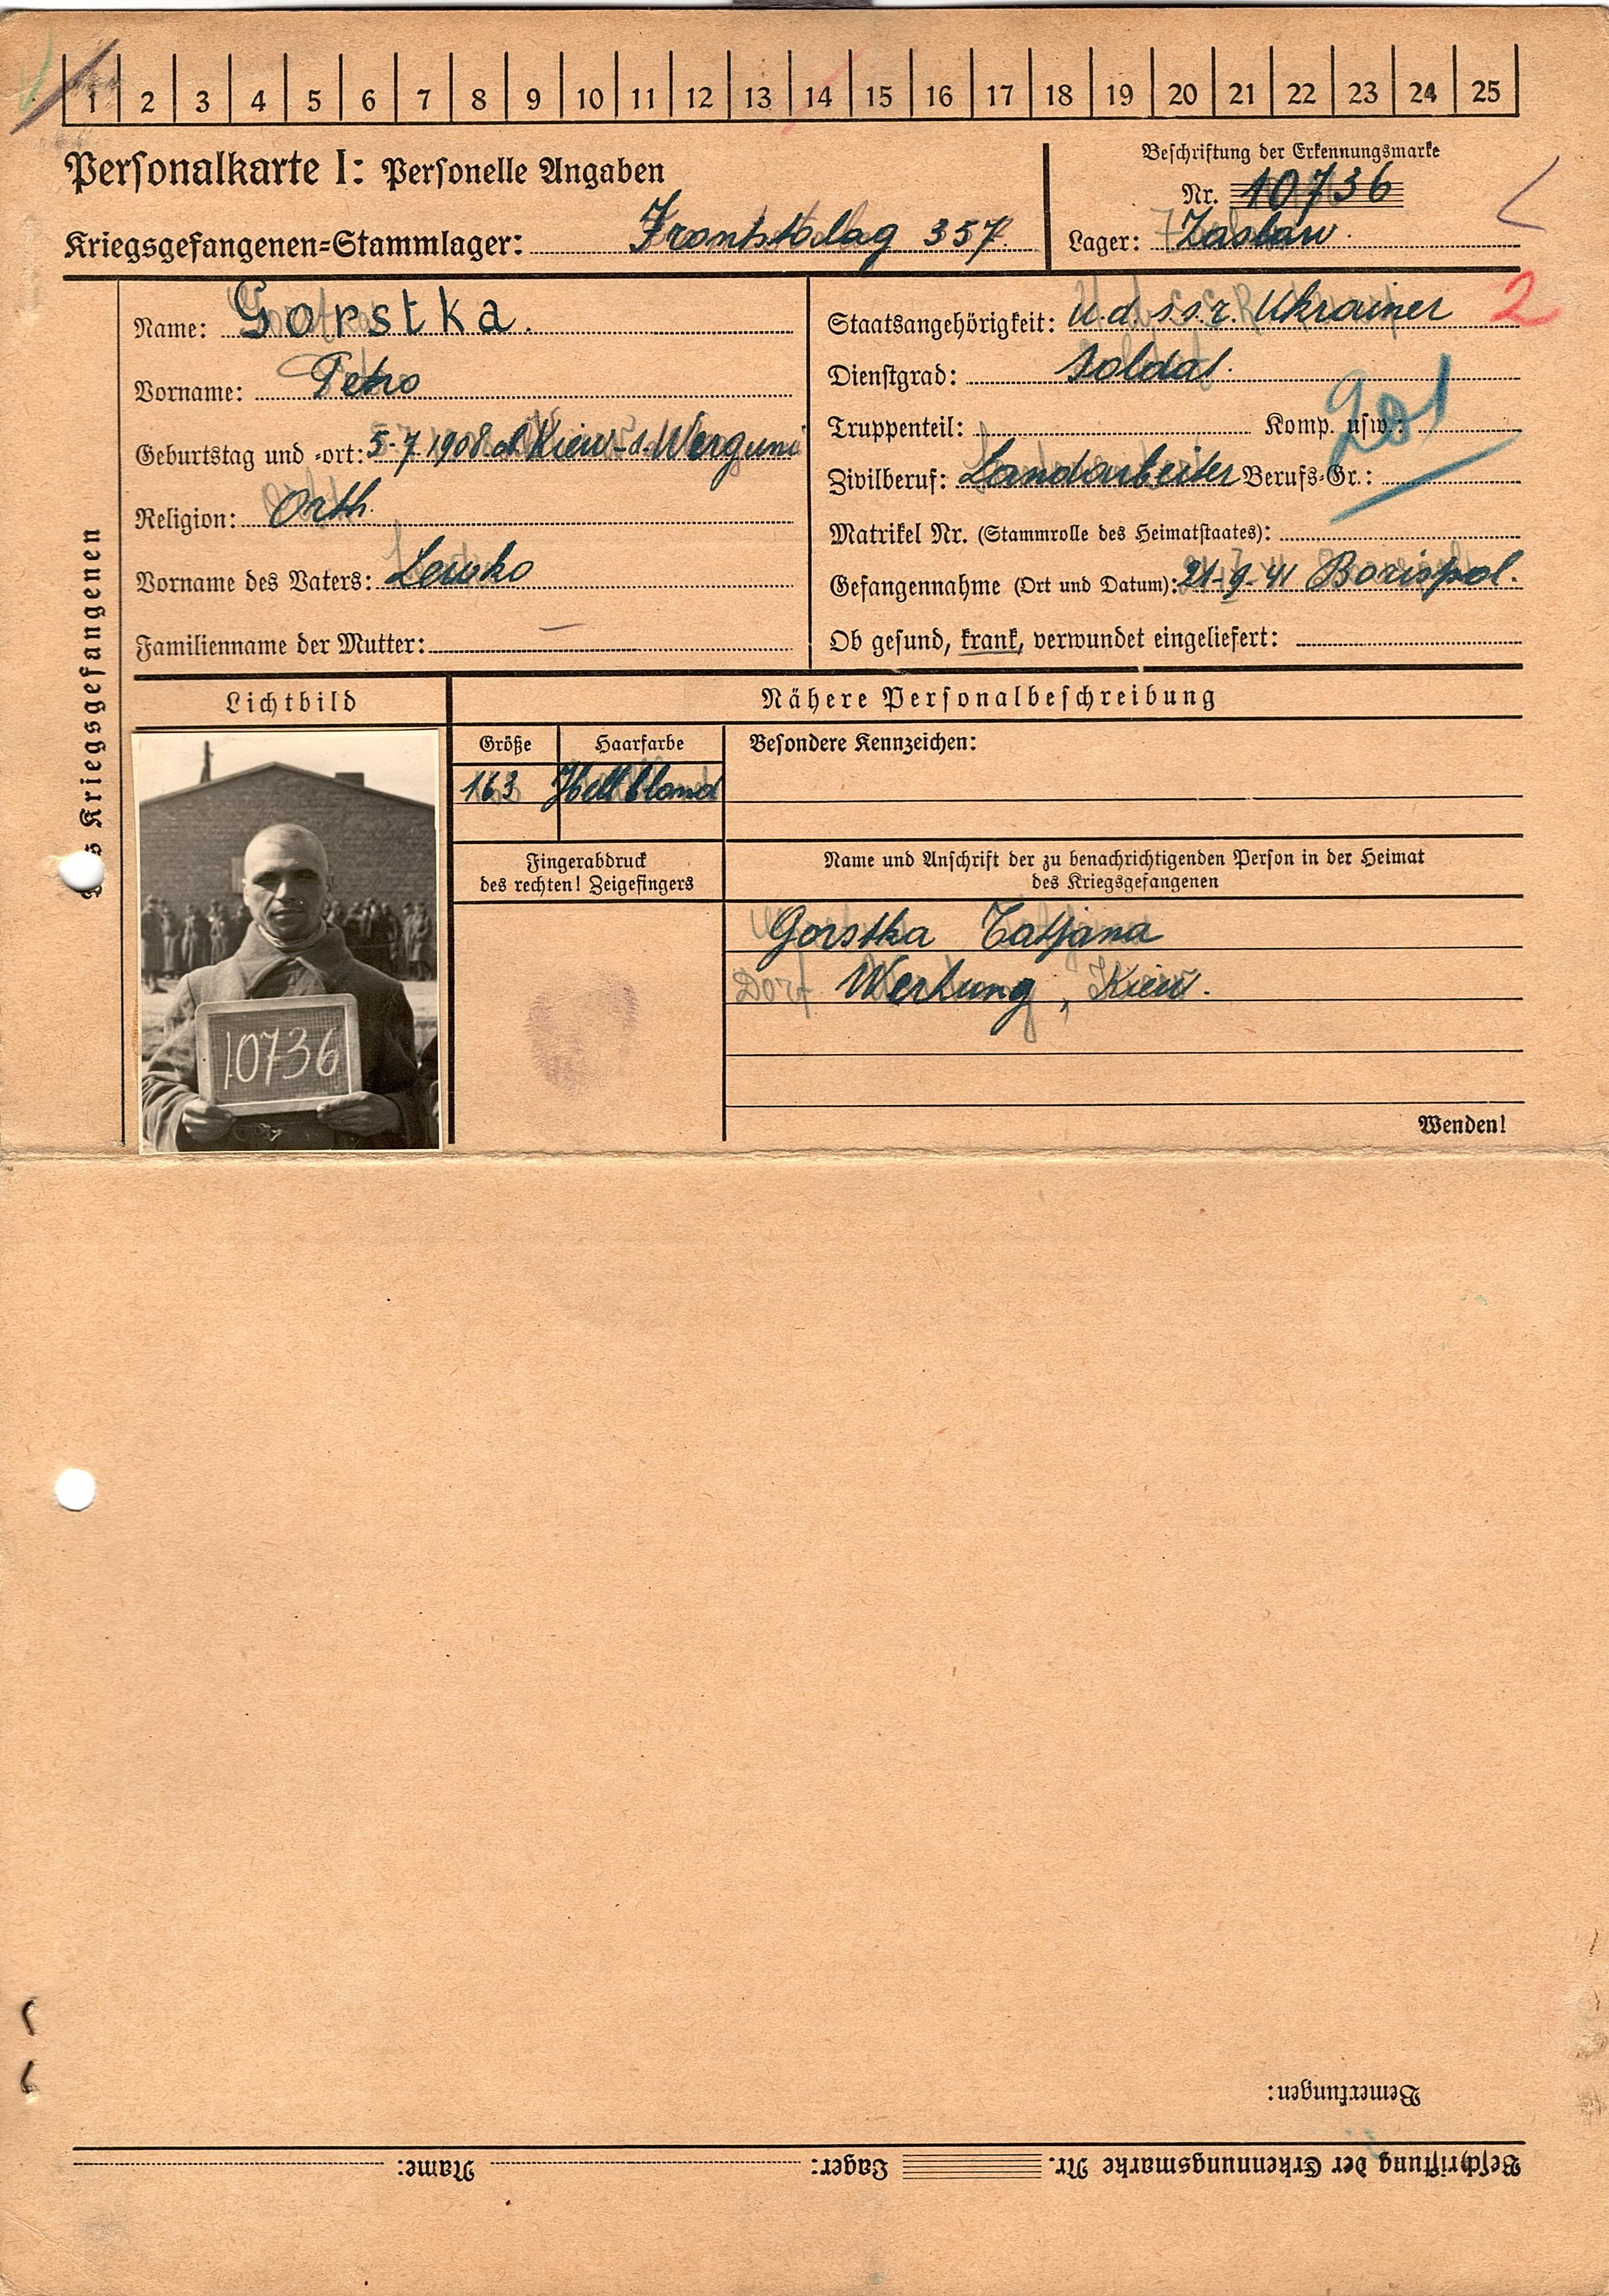 1 2 3 4 5 6 7 8 9 10 11 12 13 14 15 16 17 18 19 20 21 22 23 24 25
Personalkarte I: Personelle Angaben
Beschriftung der Erkennungsmarke
Nr. 10736
Kriegsgefangenen=Stammlager: Frontstalag 357.
Lager: Zaslaw.
Name: Gorstka.
Vorname: Petro
Geburtstag und =ort: 5-7.1908 Kiew-d.Werguni
Religion: Orth.
Vorname des Vaters: Lewko
Familienname der Mutter: —
Staatsangehörigkeit: U.d.s.s.r. Ukrainer
2
Dienstgrad: Soldat.
Truppenteil: Komp. usw.:
201
Zivilberuf: Landarbeiter Berufs=Gr.:
Matrikel Nr. (Stammrolle des Heimatstaates):
Gefangennahme (Ort und Datum): 21-9-41 Borispol.
Ob gesund, krank, verwundet eingeliefert:
Kriegsgefangenen
Lichtbild
Nähere Personalbeschreibung
Größe
Haarfarbe
Besondere Kennzeichen:
163
Hellblond
Fingerabdruck
des rechten! Zeigefingers
Name und Anschrift der zu benachrichtigenden Person in der Heimat
des Kriegsgefangenen
Gorstka Tatjana
Dorf Werhung, Kiew.
10736
Wenden!
Bemerkungen:
Beschriftung der Erkennungsmarke Nr. Lager: Name: